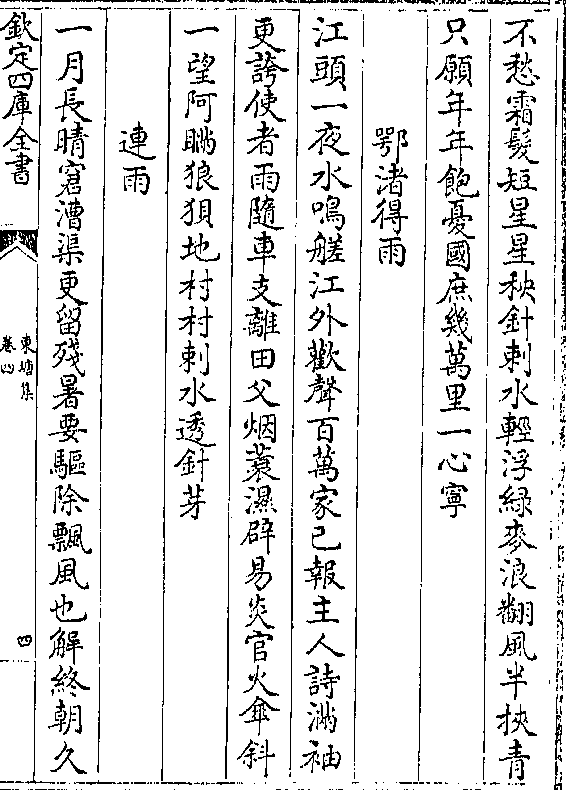 不愁霜髮短星星秧針刺水輕浮綠麥浪翻風半挾青
只願年年飽憂國庶幾萬里一心寧
鄂渚得雨
江頭一夜水鳴艖江外歡聲百萬家已報主人詩滿袖
更誇使者雨隨車支離田父烟蓑濕辟易炎官火傘斜
一望阿瞞狼狽地村村刺水透針芽
連雨
一月長晴窘漕渠更留殘暑要驅除飄風也解終朝久
欽定四庫全書
東塘集
卷四
四